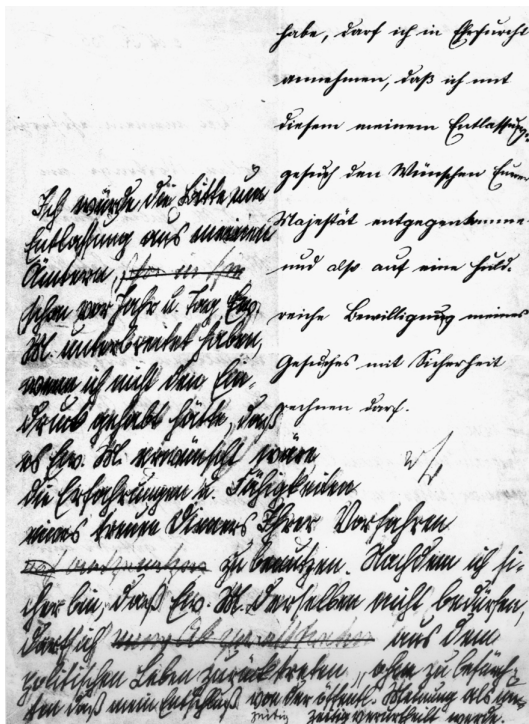 habe, darf ich in Ehrfurcht
annehmen, daß ich mit
diesem meinem Entlassungs-
gesuch den Wünschen Eurer
Majestät entgegenkomme
und also auf eine huld-
reiche Bewilligung meines
Gesuches mit Sicherheit
rechnen darf.
Ich würde die Bitte um
Entlassung aus meinen
Ämtern
schon vor Jahr u. Tag Ew.
M. unterbreitet haben,
wenn ich nicht den Ein-
druck gehabt hätte, daß
es Ew. M. erwünscht wäre,
die Erfahrungen u. Fähigkeiten
eines treuen Dieners Ihrer Vorfahren
zu benutzen. Nachdem ich si-
cher bin, daß Ew. M. derselben nicht bedürfen,
darf ich aus dem
politischen Leben zurücktreten, ohne zu befürch-
ten daß mein Entschluß von der öffentl. Meinung als un-
zeitig verurtheilt werde.